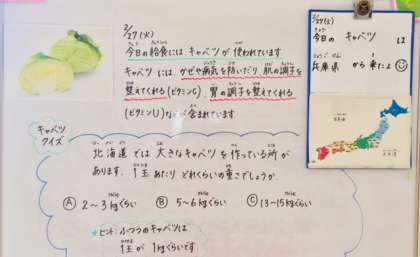 2/27(火)
今日の給食には、キャベツが使われています
キャベツには、かぜや病気を防いだり、肌の調子を
整えてくれる(ビタミンC)、胃の調子を整えてくれる
(ビタミンU)などが含まれています。
2/27(火)
今日の キャベツ は
兵庫県 から来たよ
キャベツ
クイズ
北海道では大きなキャベツを作っている所が
あります。1玉あたりどれくらいの重さでしょうか。
Ⓐ 2〜3kgくらい Ⓑ 5〜6kgくらい Ⓒ 13〜15kgくらい
ヒント:ふつうのキャベツは
1玉が1kgくらいです